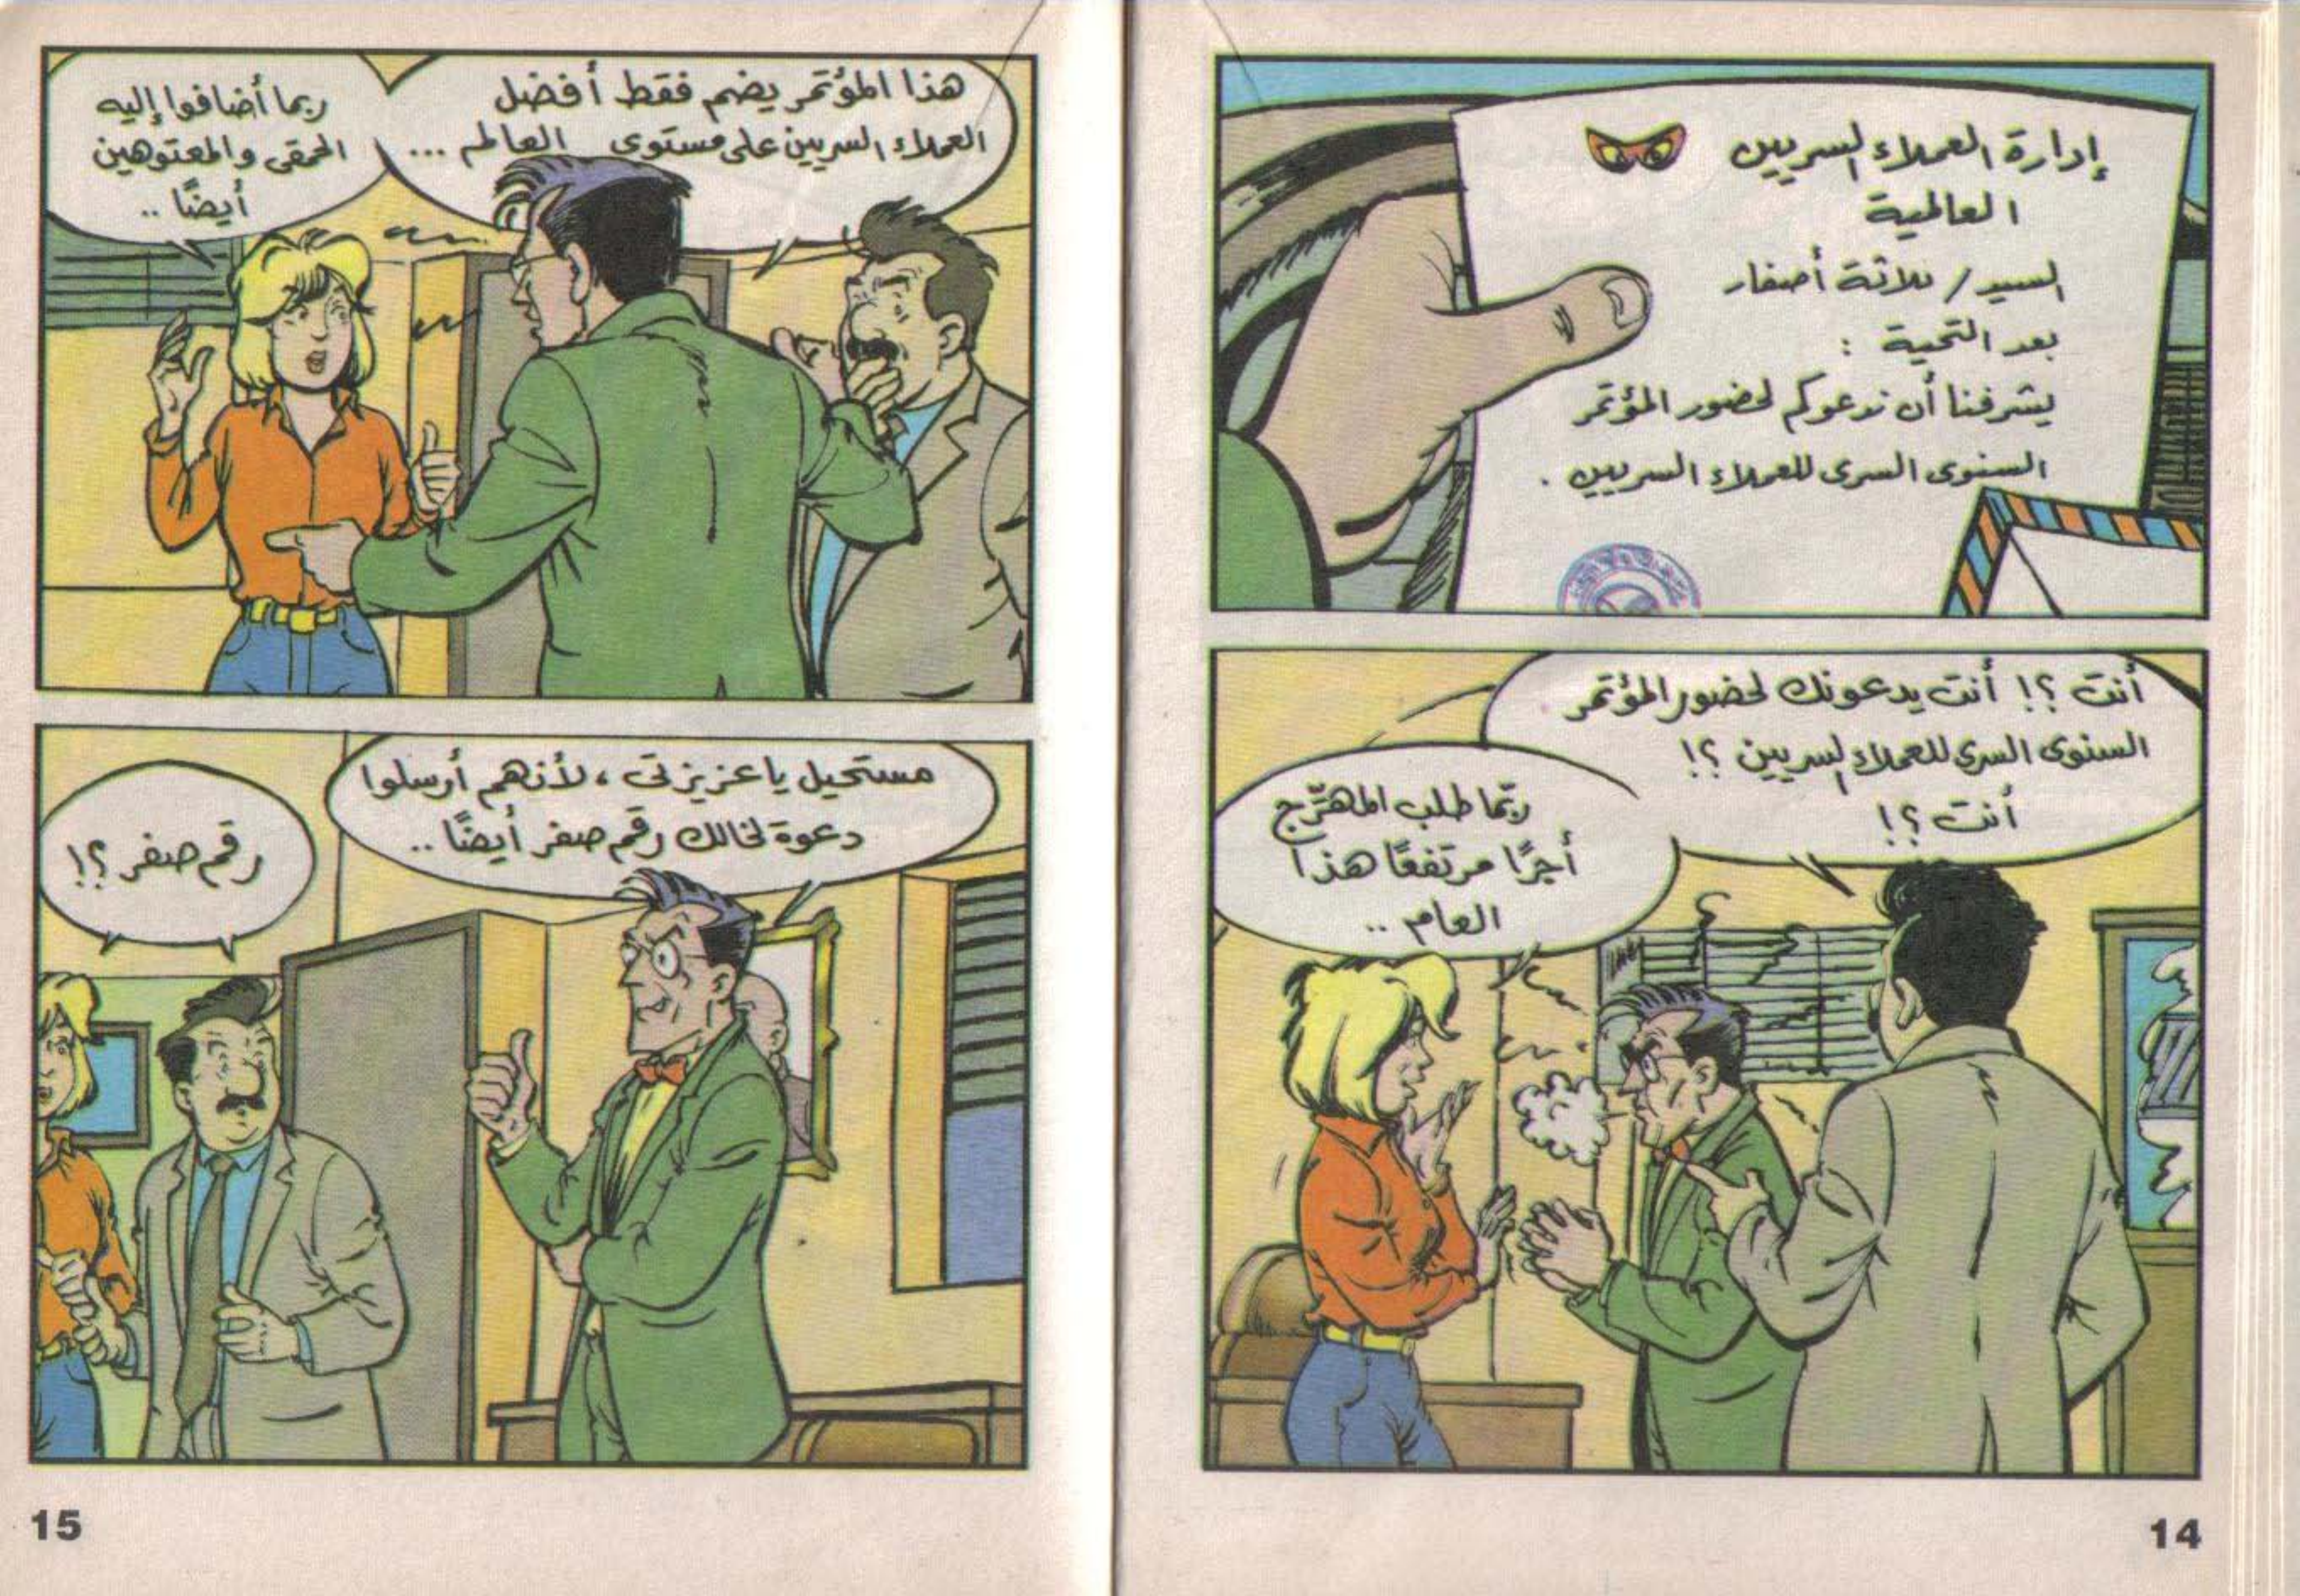 إدارة العملاء السريين
العالمية
السيد / ثلاثة أصفار
بعد التحية :
يشرفنا أن ندعوكم لحضور المؤتمر
السنوى السرى للعملاء السريين .
أنت ؟! أنت يدعونك لحضور المؤتمر
السنوى السرى للعملاء السريين ؟!
أنت ؟!
ربّما طلب المهرّج
أجرًا مرتفعًا هذا
العام ..
14
هذا المؤتمر يضم فقط أفضل
العملاء السريين على مستوى العالم ...
ربما أضافوا إليه
الحمقى والمعتوهين
أيضًا ..
مستحيل يا عزيزتى ، لأنهم أرسلوا
دعوة لخالك رقم صفر أيضًا ..
رقم صفر ؟!
15